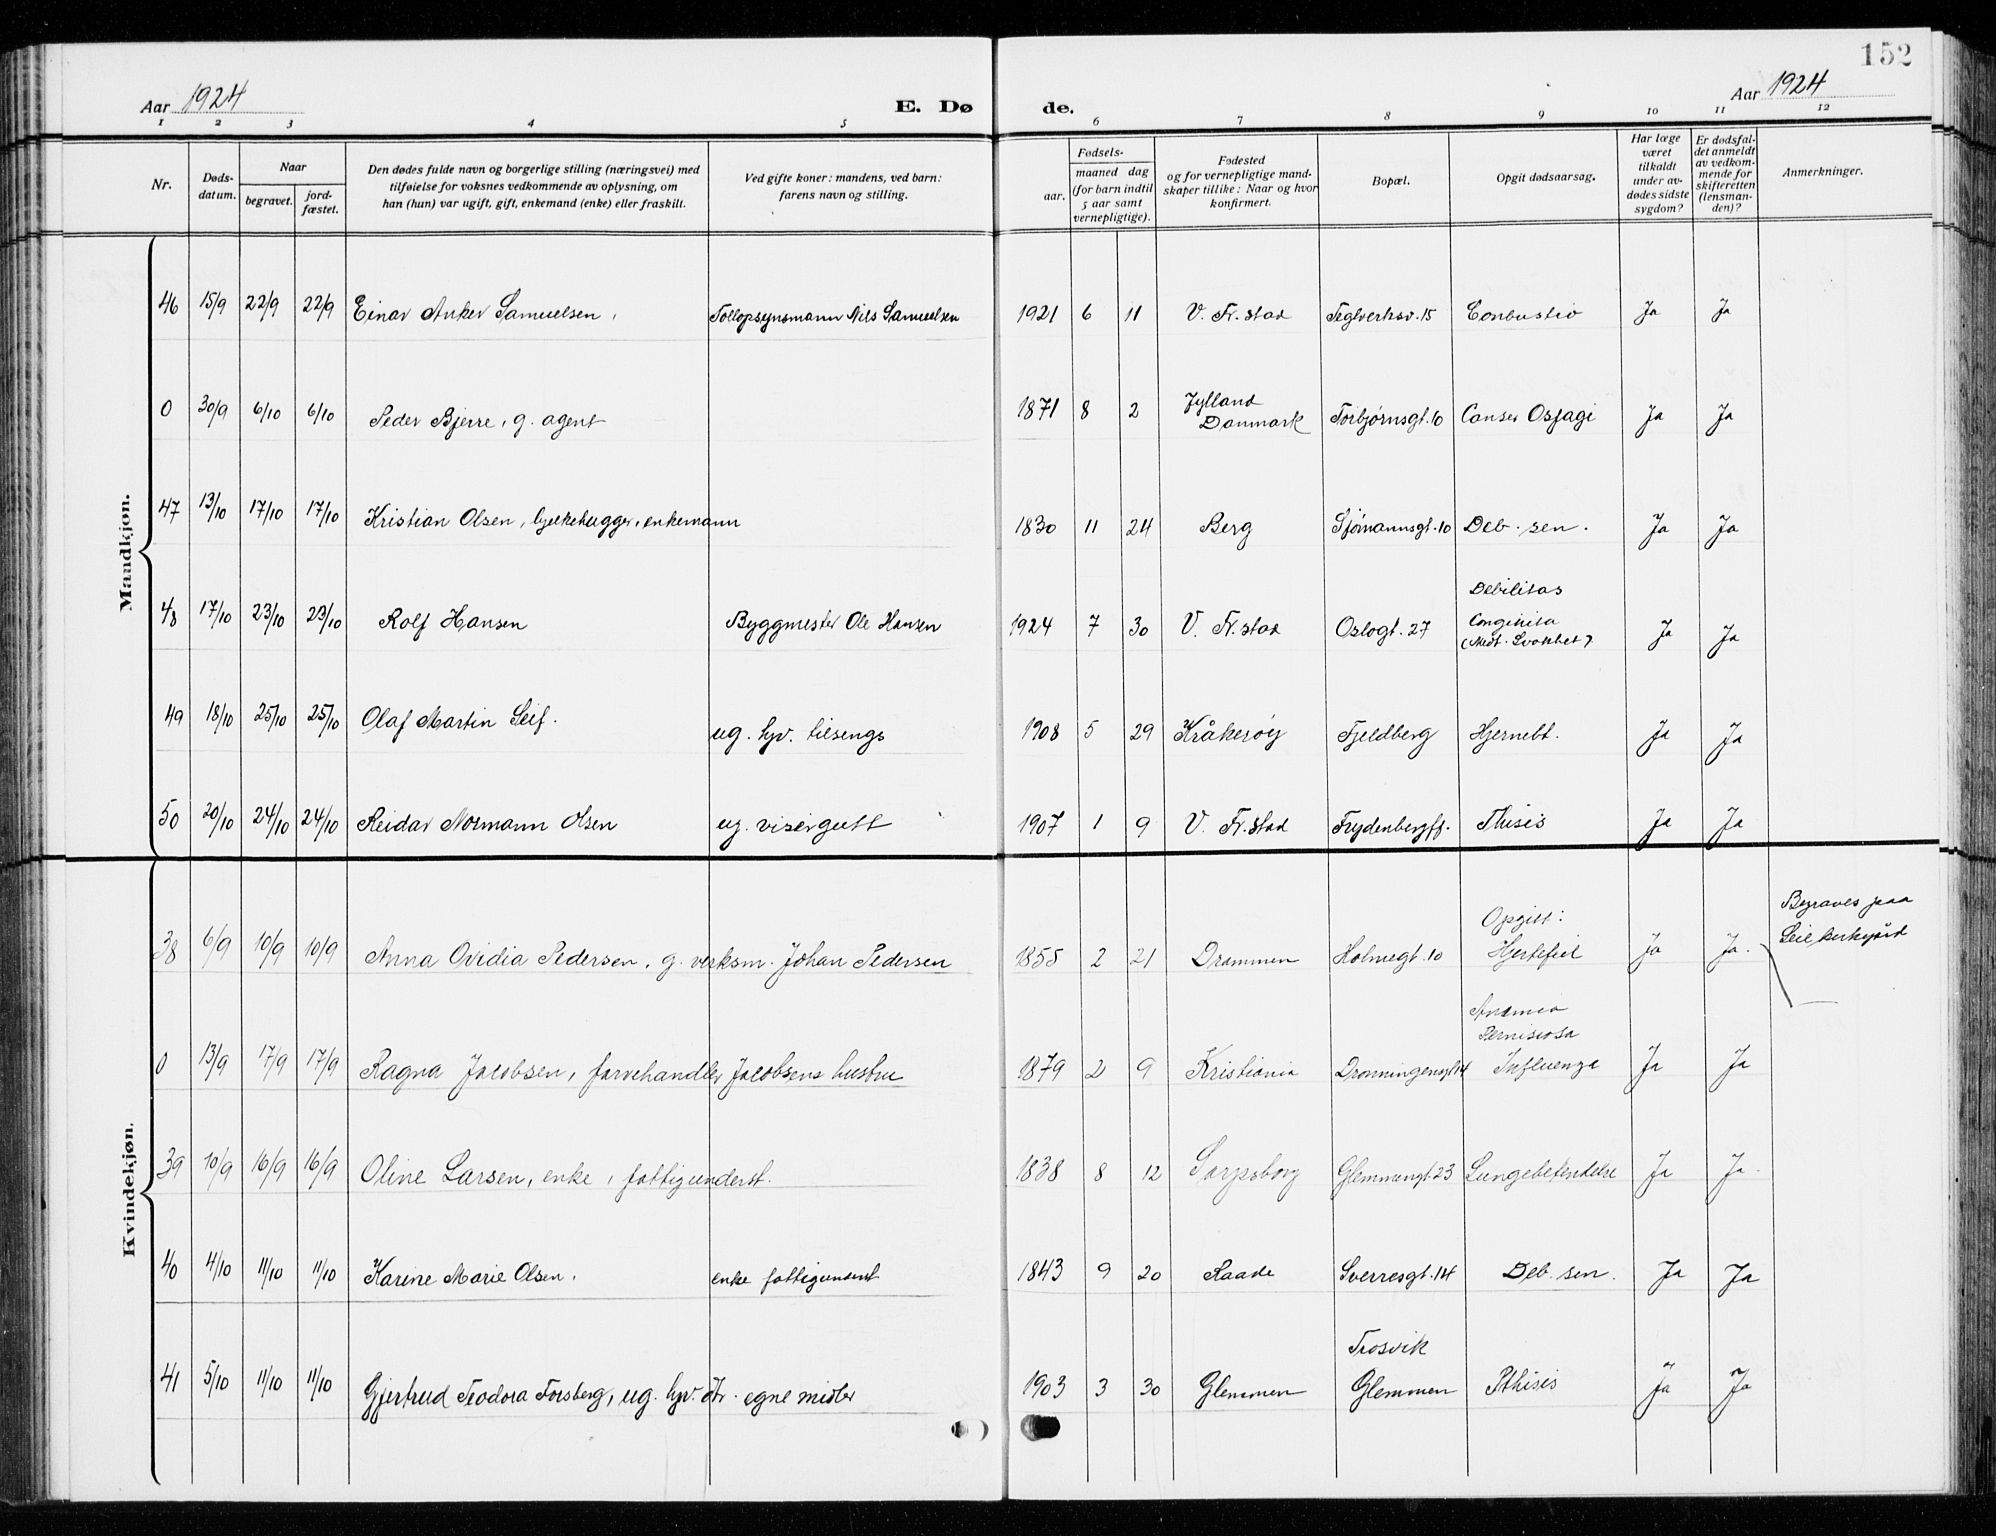 152
Aar 1924
E. Dø
de.
Aar 1924
1 2 3 4 5 6 7 8 9 10 11 12
Nr.
Døds-
datum.
Naar
begravet.
jord-
fæstet.
Den dødes fulde navn og borgerlige stilling (næringsvei) med
tilføielse for voksnes vedkommende av oplysning, om
han (hun) var ugift, gift, enkemand (enke) eller fraskilt.
Ved gifte koner: mandens, ved barn:
farens navn og stilling.
Fødsels-
aar.
maaned dag
(for barn indtil
5 aar samt
vernepligtige).
Fødested
og for vernepligtige mand-
skaper tillike: Naar og hvor
konfirmert.
Bopæl.
Opgit dødsaarsag.
Har læge
været
tilkaldt
under av-
dødes sidste
sygdom?
Er dødsfal-
det anmeldt
av vedkom-
mende for
skifteretten
(lensman-
den)?
Anmerkninger.
Mandkjøn.
46 15/9 22/9 22/9 Einar Anker Samuelsen, Tollopsynsmann Nils Samuelsen 1921 6 11 V. Fr.stad Teglverksv. 15 Conbustio Ja Ja
0 30/9 6/10 6/10 Peder Bjerre, g. agent 1871 8 2 Jylland
Danmark Torbjørnsgt. 10 Canser Osfagi Ja Ja
47 13/10 17/10 17/10 Kristian Olsen, bjelkehugger, enkemann 1830 11 24 Berg Sjømannsgt. 10 Deb. sen. Ja Ja
48 17/10 23/10 23/10 Rolf Hansen Byggmester Ole Hansen 1924 7 30 V. Fr.stad Oslogt. 27 Debilitas
Congenita
(Medf. Svakhet) Ja Ja
49 18/10 25/10 25/10 Olaf Martin Leif. ug. hjv. tilsengs 1908 5 29 Kråkerøy Fjeldberg Hjernebt. Ja Ja
50 20/10 24/10 24/10 Reidar Normann Olsen ug. visergutt 1907 1 9 V. Fr.stad Frydenberggt. Thisis Ja Ja
Kvindekjøn.
38 6/9 10/9 10/9 Anna Ovidia Pedersen, g. verksm. Johan Pedersen 1855 2 21 Drammen Holmegt. 10 Opgitt:
Hjertefeil Ja Ja. Begraves paa
Leie kirkegård
0 13/9 17/9 17/9 Ragna Jacobsen, farvehandler Jacobsens hustru 1879 2 9 Kristiania Dronningensgt 14 Anemia
Pernisiosa
Influenza Ja Ja
39 10/9 16/9 16/9 Oline Larsen, enke, fattigunderst. 1838 8 12 Sarpsborg Glemmengt. 23 Lungebetendelse Ja Ja
40 4/10 11/10 11/10 Karine Marie Olsen. enke fattigunderst 1843 9 20 Raade Sverresgt. 14 Deb. sen. Ja Ja
41 5/10 11/10 11/10 Gjertrud Teodora Forsberg, ug. hjv. dtr. egne midler 1903 3 30 Glemmen Trosvik
Glemmen Pthisis Ja Ja